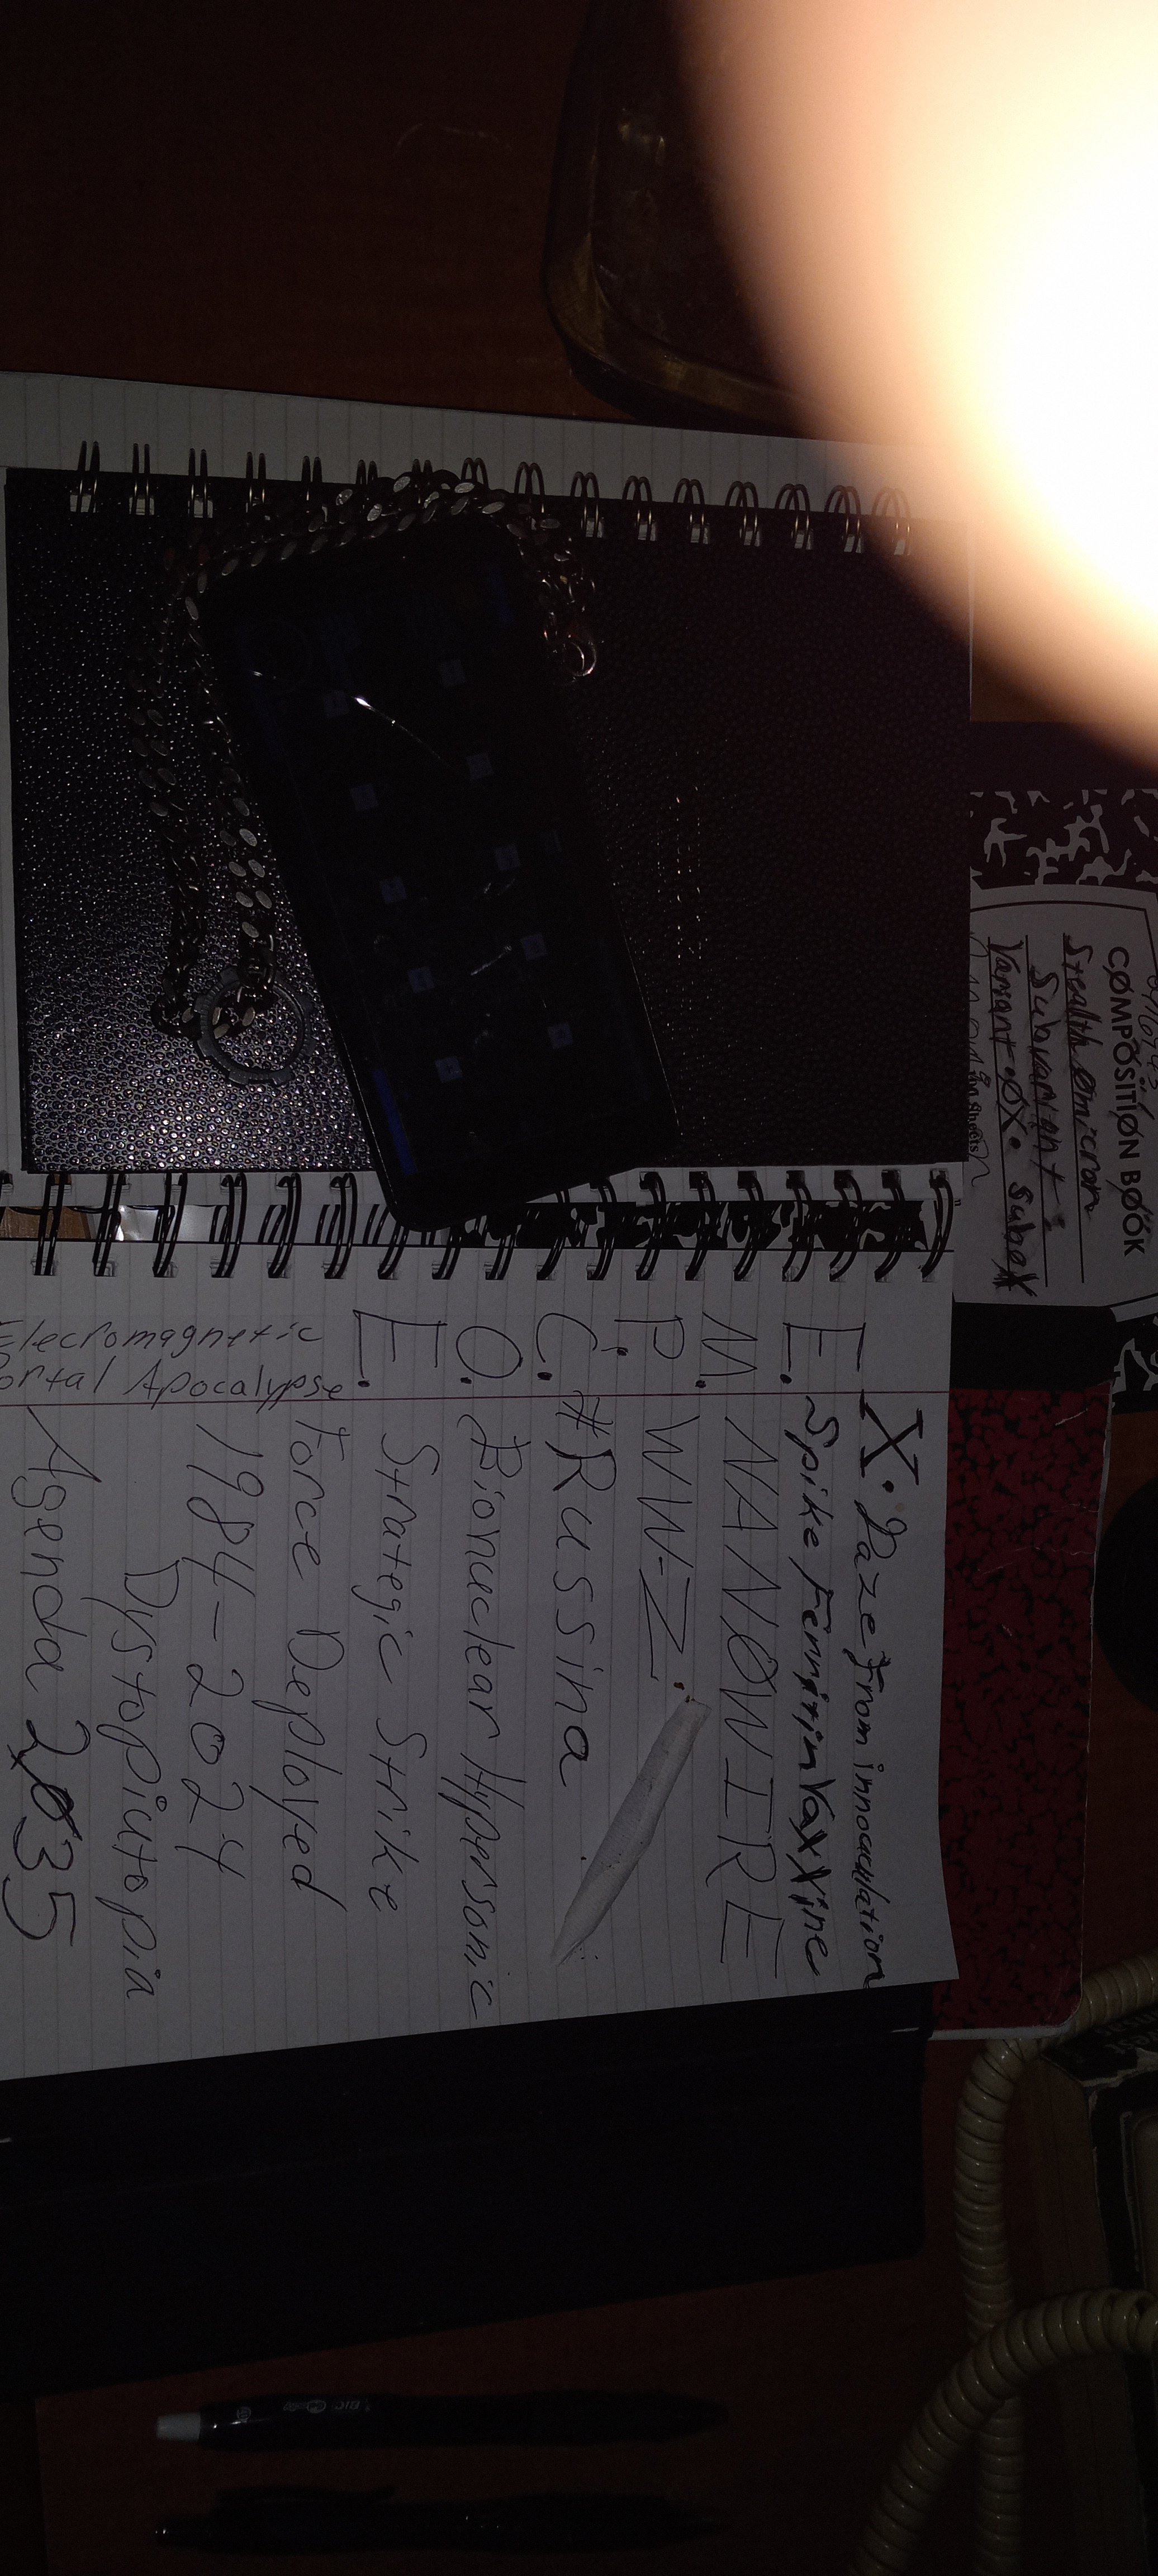 CØMPÖSITIØN BØÖK
Stealth Ømicron
Subvariant
Variant ØX. 
E X. Daze From innoculation
E. Spike Ferritin Vaxxine
M. NANØWIRE
P. WW-Z.
C. #Russina
O. Bionuclear Hypersonic
E. Strategic Strike
Force Deployed
1984-2024
Dystopiutopia
Agenda 2035
Elecromagnetic
ortal Apocalypse
BIC